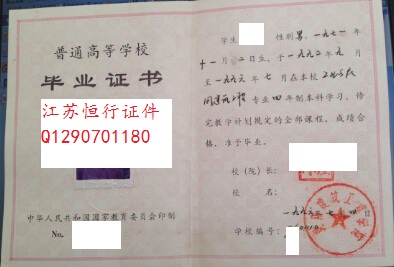 普通高等学校
毕业证书
江苏恒行证件
Q1290701180
中华人民共和国国家教育委员会印制
No.
学生 性别男，一九七一年
十一月 二日生，于一九九二年九月
至一九九六年七月在本校
专业四年制本科学习，修
完教学计划规定的全部课程，成绩合
格，准予毕业。
校（院）长：
校 名：
一九九六年七月 四日
学校编号：